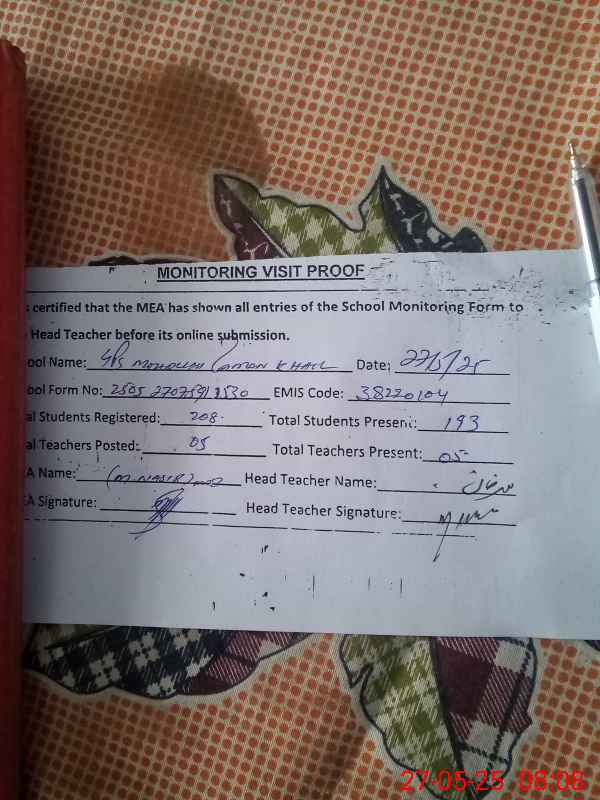 MONITORING VISIT PROOF
s certified that the MEA has shown all entries of the School Monitoring Form to
Head Teacher before its online submission.
ool Name: GPS KHAIL Date: 27/5/25
ool Form No: EMIS Code: 38220104
al Students Registered: 208 Total Students Present: 193
al Teachers Posted: 05 Total Teachers Present: 05
A Name: (M.NASIR) Head Teacher Name:
A Signature: Head Teacher Signature:
27-05-25 08:08